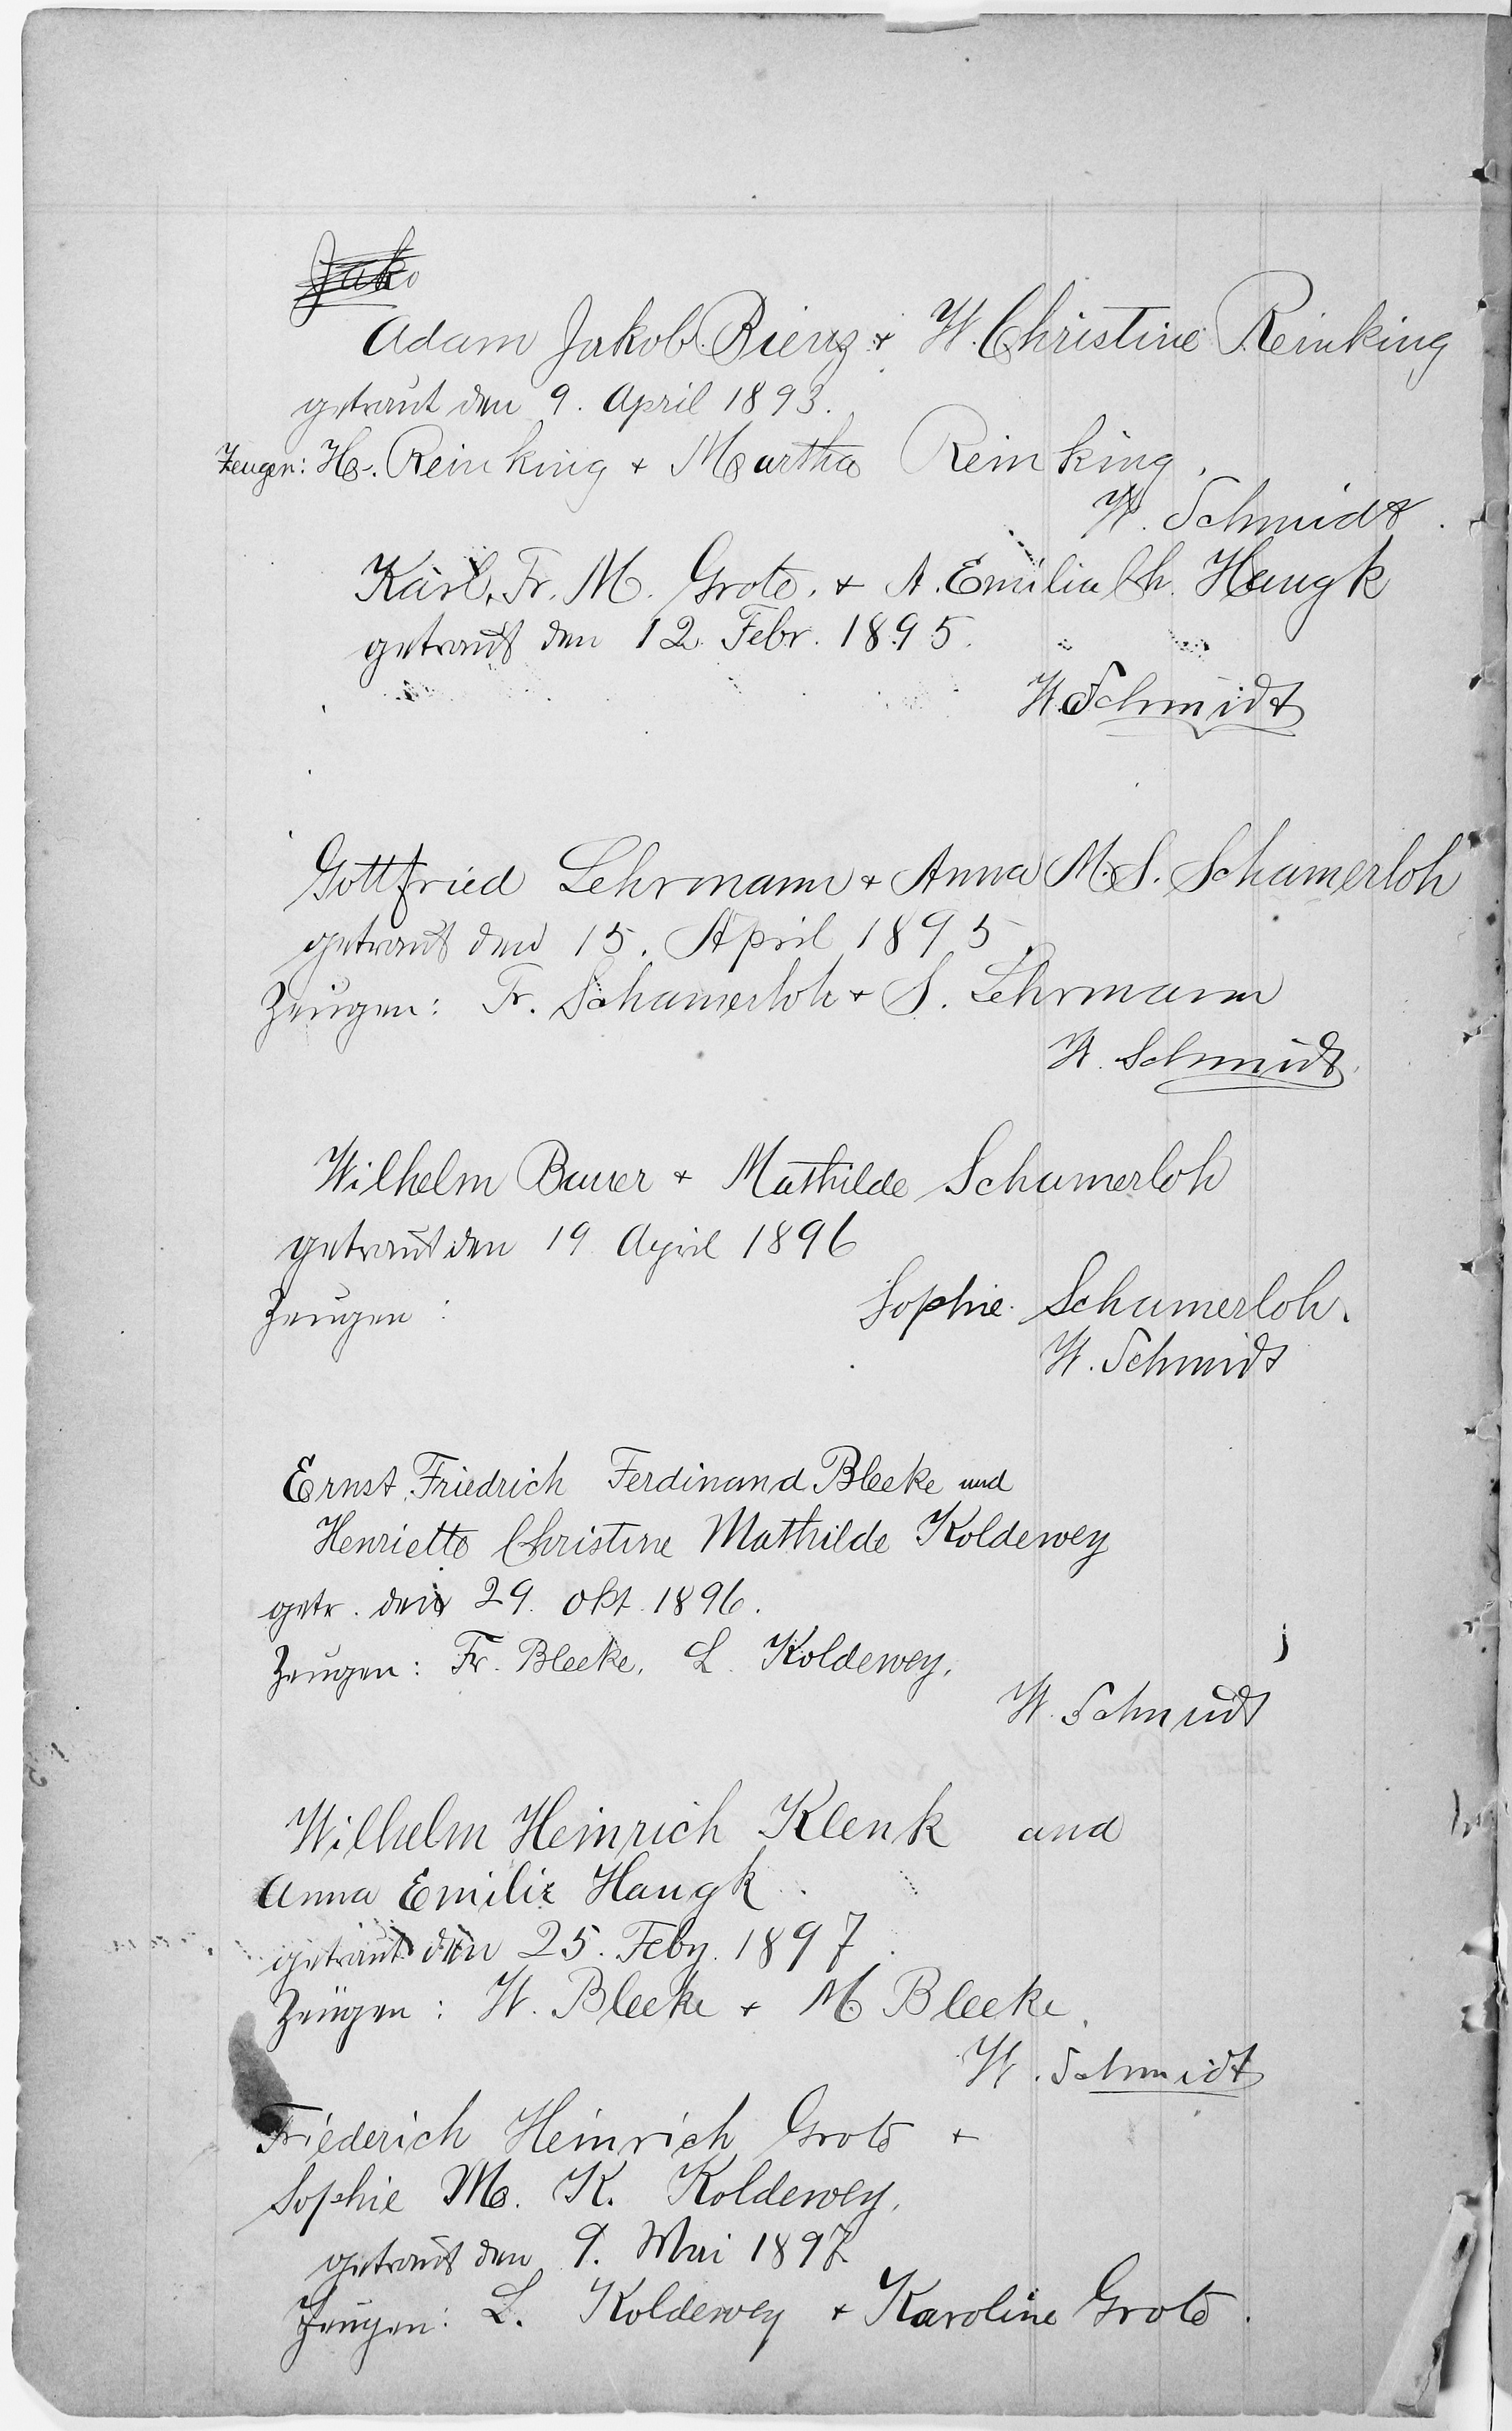 Jako
Adam Jakob Rienz + W. Christine Reinking
getraut den 9. April 1893.
Zeugen: H. Reinking + Martha Reinking.
W. Schmidt.
Karl. Fr. M. Grote. + A. Emilia Ch. Haugk
getraut den 12. Febr. 1895.
W. Schmidt
Gottfried Lehrmann + Anna M. S. Schamerloh
getraut den 15. April 1895.
Zeugen: Fr. Schamerloh + S. Lehrmann
W. Schmidt.
Wilhelm Bauer + Mathilde Schamerloh
getraut den 19 April 1896
Zeugen: Sophie Schamerloh.
W. Schmidt
Ernst Friedrich Ferdinand Bleeke und
Henriette Christine Mathilde Koldewey
getr. den 29. Okt. 1896.
Zeugen: Fr. Bleeke, L. Koldewey.
W. Schmidt
Wilhelm Heinrich Klenk und
Anna Emilie Haugk.
getraut den 25. Feby. 1897.
Zeugen: W. Bleeke + M Bleeke.
W. Schmidt
Friederich Heinrich Grote +
Sophie M. K. Koldewey.
getraut den 9. Mai 1897
Zeugen: L. Koldewey + Karoline Grote.